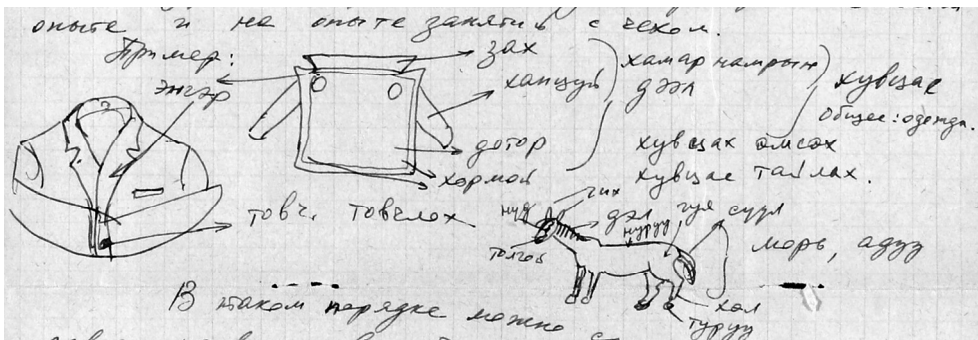 опыте и на опыте занятий с чехом.
Пример:
зах
энгэр
ханцуй
хамар намрын
дээл
хувцас
Общее: одежда.
дотор
хормой
хувцах омсох
хувцас тайлах.
товч, товчлох
нүд
чих
дэл
нуруу
гуя
сүүл
толгой
морь, адуу
хөл
туруу
В таком порядке можно